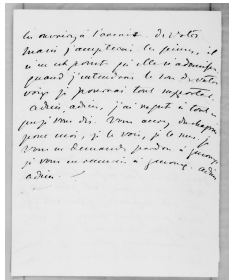 les envoyez à l'avenir. de votre
main j'accepterai les peines, il
n'en est point qu'elle n'adoucisse
quand j'entendrai le son de votre
voix je pourrai tout supporter.
adieu, adieu, j'ai
que je vous dis. Vous avez du chagrin
pour moi, je le vois, je le sens, je
vous en demande pardon à genoux
je vous en remercie à genoux. adieu
adieu.